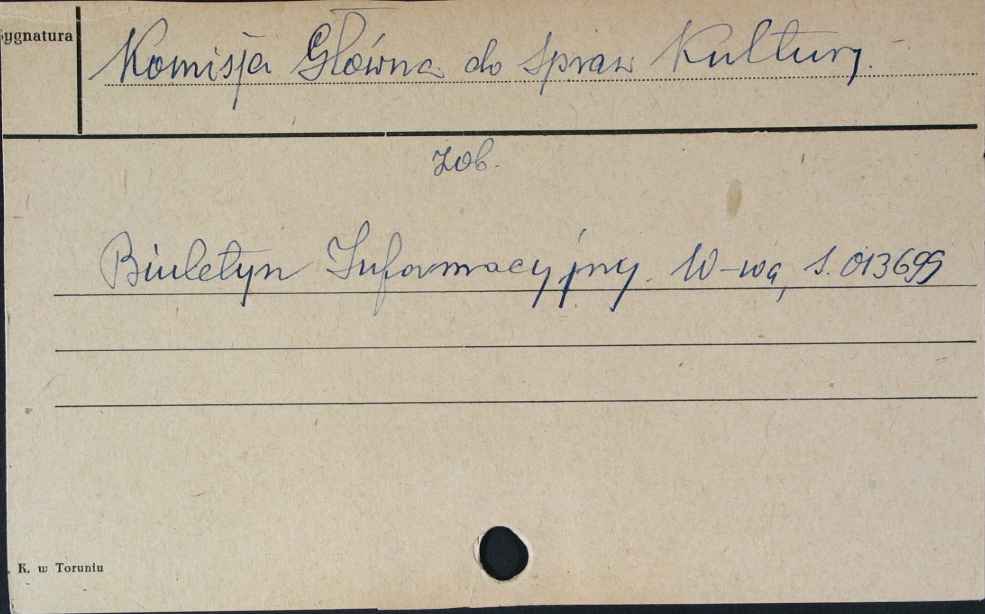 Sygnatura
Komisja Główna do Spraw Kultury.
zob.
Biuletyn Informacyjny. W-wa, S. 013699
K. w Toruniu